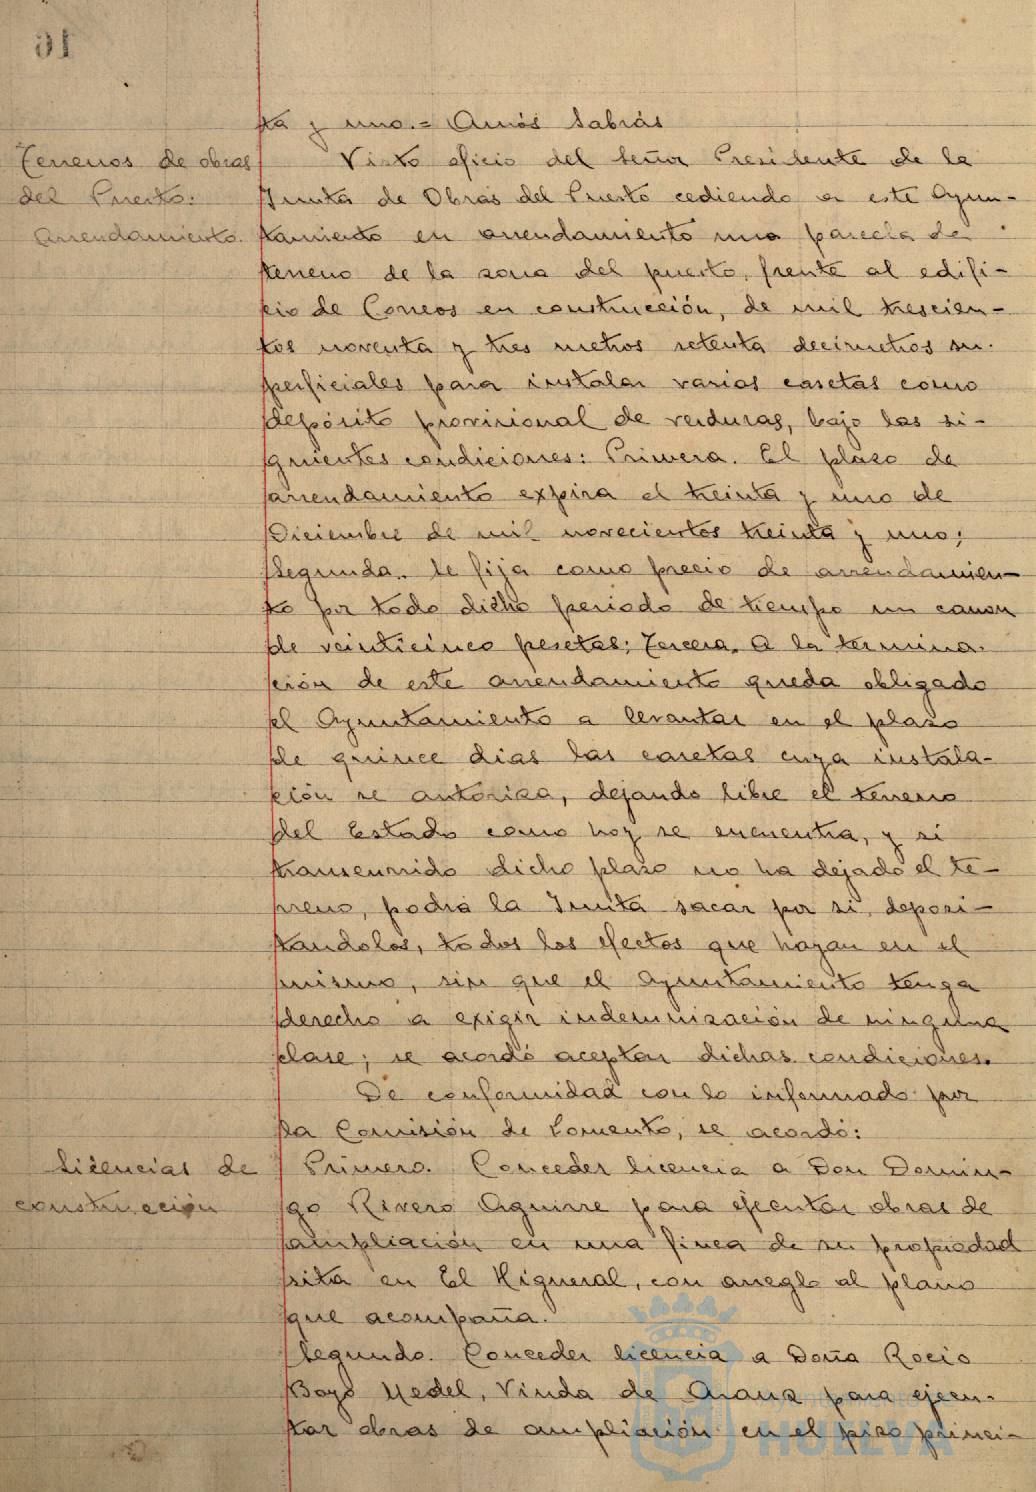 ta y uno.= Amós Sabrás
Terrenos de obras
del Puerto:
Arrendamiento.
Visto oficio del Señor Presidente de la
Junta de Obras del Puerto cediendo a este Ayun-
tamiento en arrendamiento una parcela de
terreno de la zona del puerto, frente al edifi-
cio de Correos en construcción, de mil trescien-
tos noventa y tres metros setenta decimetros su-
perficiales para instalar varias casetas como
depósito provisional de verduras, bajo las si-
guientes condiciones: Primera. El plazo de
arrendamiento expira el treinta y uno de
Diciembre de mil novecientos treinta y uno;
Segunda. Se fija como precio de arrendamien-
to por todo dicho periodo de tiempo un canon
de veinticinco pesetas; Tercera. A la termina-
ción de este arrendamiento queda obligado
el Ayuntamiento a levantar en el plazo
de quince dias las casetas cuya instala-
ción se autoriza, dejando libre el terreno
del Estado como hoy se encuentra, y si
transcurrido dicho plazo no ha dejado el te-
rreno, podrá la Junta sacar por si, deposi-
tandolos, todos los efectos que hayan en el
mismo, sin que el Ayuntamiento tenga
derecho a exigir indemnización de ninguna
clase; se acordó aceptar dichas condiciones.
De conformidad con lo informado por
la Comisión de Fomento, se acordó:
Licencias de
construcción
Primero. Conceder licencia a Don Domin-
go Rivero Aguirre para ejecutar obras de
ampliación en una finca de su propiedad
sita en El Higueral, con arreglo al plano
que acompaña.
Segundo. Conceder licencia a Doña Rocio
Bayo Medel, Viuda de Arauz para ejecu-
tar obras de ampliación en el piso princi-
16
Ayuntamiento
HUELVA